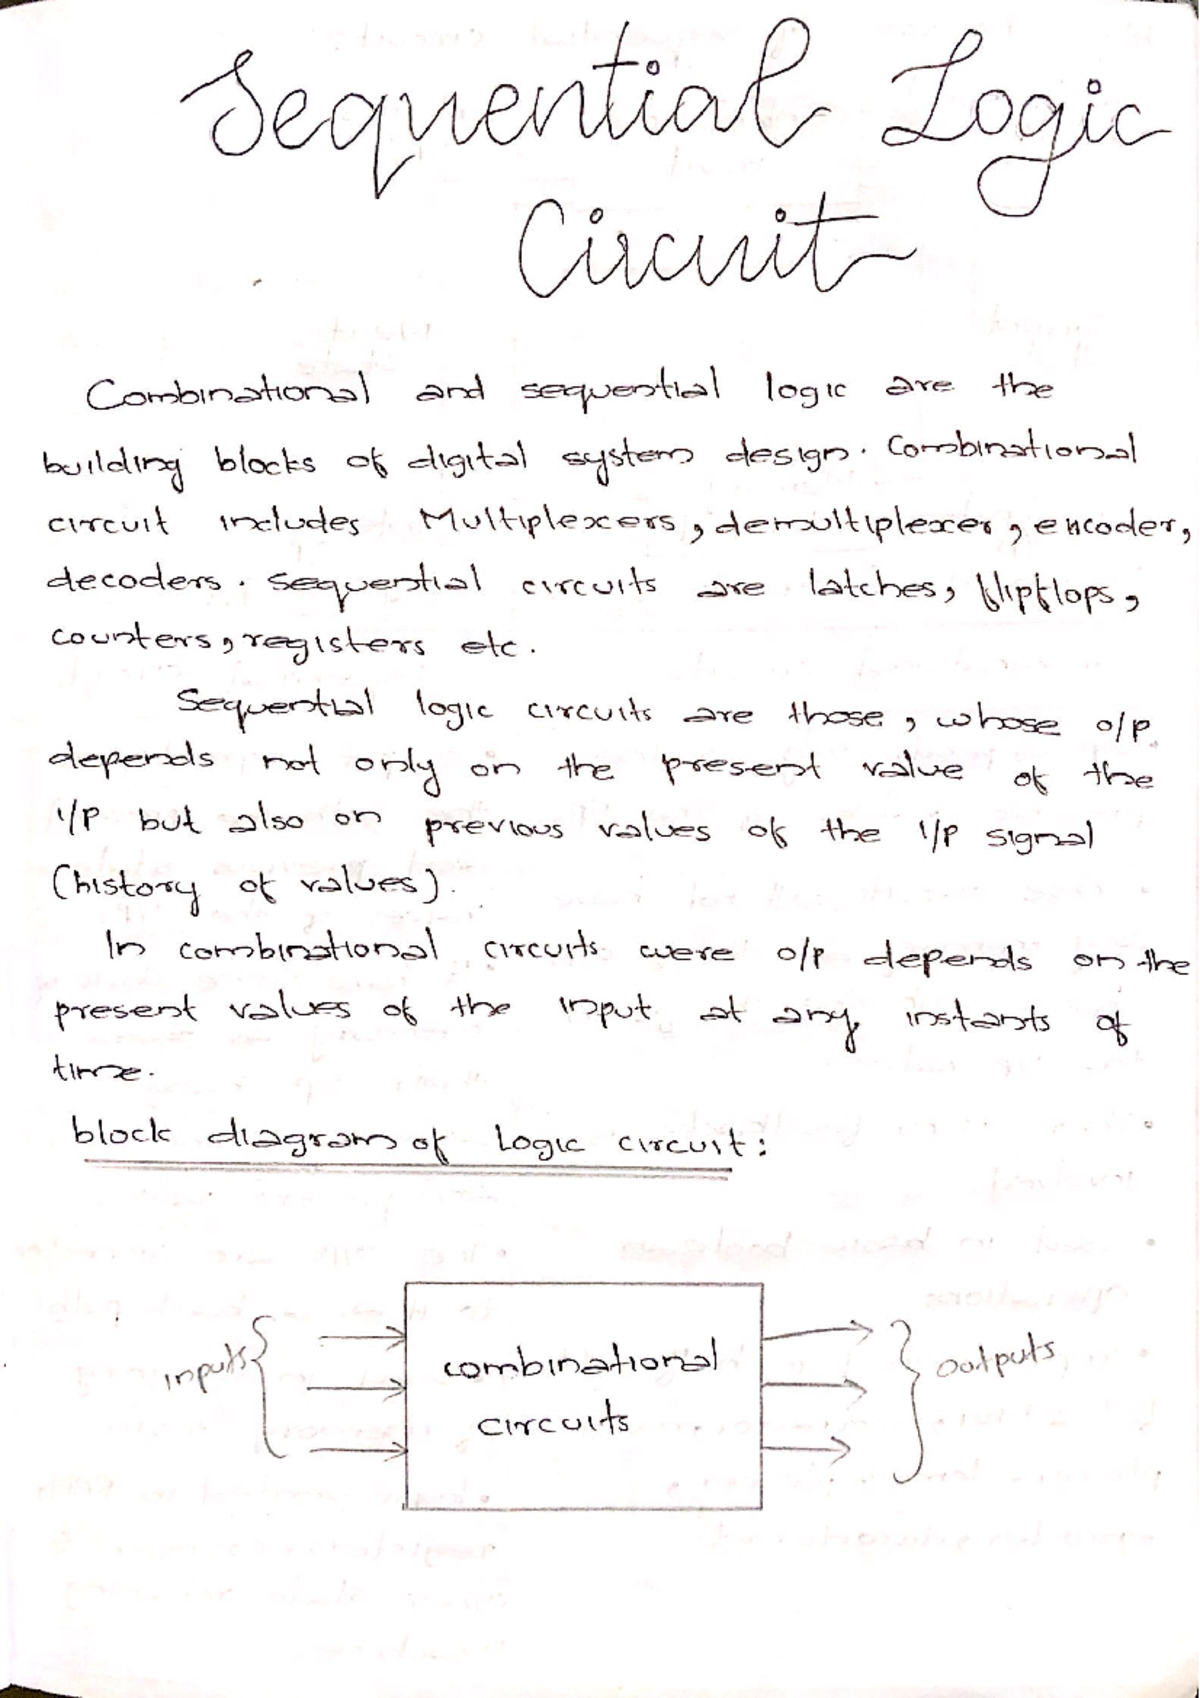 Sequential Logic
Circuit
Combinational and sequential logic are the
building blocks of digital system design. Combinational
circuit includes Multiplexers, demultiplexer, encoder,
decoders. Sequential circuits are latches, flipflops,
counters, registers etc.
Sequential logic circuits are those, whose o/p
depends not only on the present value of the
i/p but also on previous values of the i/p signal
(history of values).
In combinational circuits were o/p depends on the
present values of the input at any instants of
time.
block diagram of Logic circuit:
inputs
combinational
circuits
outputs